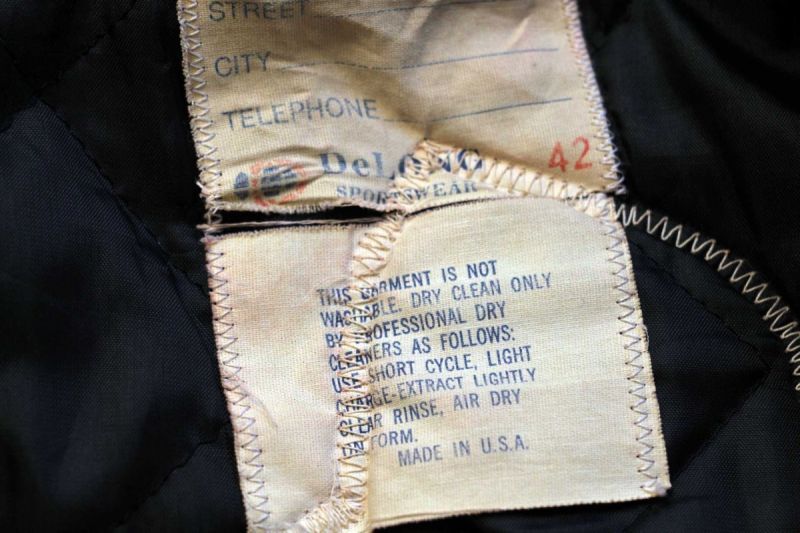 STREET
CITY
TELEPHONE
DeLONG 42
SPORTSWEAR
THIS GARMENT IS NOT
WASHABLE. DRY CLEAN ONLY
BY PROFESSIONAL DRY
CLEANERS AS FOLLOWS:
USE SHORT CYCLE, LIGHT
CHARGE-EXTRACT LIGHTLY
CLEAR RINSE, AIR DRY
FORM.
MADE IN U.S.A.